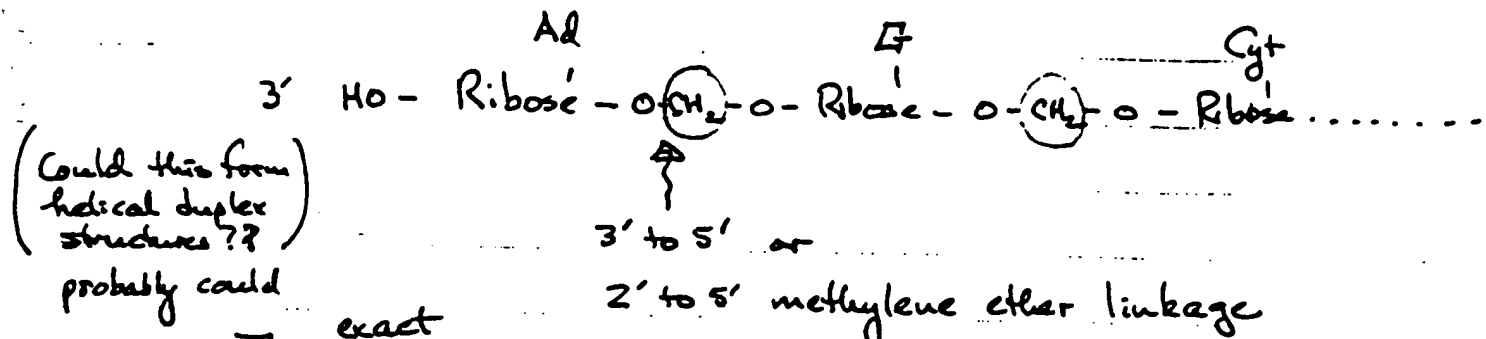 Ad G Cyt
3' HO - Ribose - O - CH2 - O - Ribose - O - CH2 - O - Ribose ........
(Could this form
helical duplex
structures??)
3' to 5' or
probably could
2' to 5' methylene ether linkage
exact